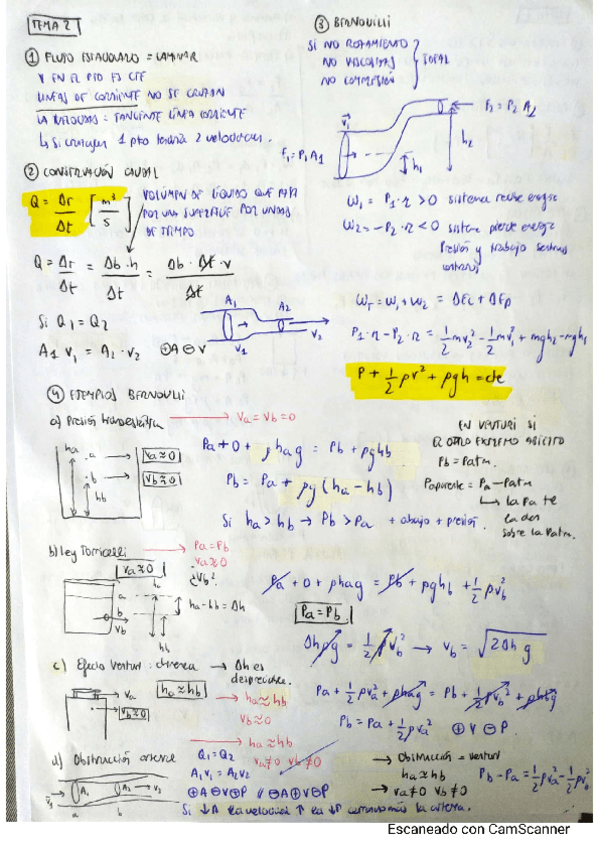 TEMA 2
① FLUJO ESTACIONARIO = LAMINAR
V EN EL PTO ES CTE
LINEAS DE CORRIENTE NO SE CRUZAN
LA VELOCIDAD = TANGENTE LÍNEA CORRIENTE
↳ Si cruzasen 1 pto tendría 2 velocidades.
② CONSERVACIÓN CAUDAL
Q = Δr/Δt [m³/s]
VOLÚMEN DE LÍQUIDO QUE PASA
POR UNA SUPERFICIE POR UNIDAD
DE TIEMPO
Q = Δr/Δt = Δb·h/Δt = Δb·Δt·v/Δt
Si Q₁ = Q₂
A₁ v₁ = A₂ · v₂ ⊕A ⊖V
A₁ A₂
V₁ V₂
③ BERNOUILLI
SI NO ROZAMIENTO
NO VISCOSIDAD
NO COMPRESIÓN
IDEAL
F₂ = P₂ A₂
V₁
F₁ = P₁ A₁
h₁
h₂
W₁ = P₁·r > 0 sistema recibe energía
W₂ = -P₂·r < 0 sistema pierde energía
Presión y trabajo sentidos
contrarios
Wτ = W₁ + W₂ = ΔEc + ΔEp
P₁·r - P₂·r = 1/2 mv₂² - 1/2 mv₁² + mgh₂ - mgh₁
P + 1/2 ρv² + ρgh = cte
④ EJEMPLOS BERNOUILLI
a) Presión hidrostática → Va = Vb = 0
ha
a → Va ≈ 0
b → Vb ≈ 0
hb
Pa + 0 + ρhag = Pb + ρghb
Pb = Pa + ρg (ha - hb)
Si ha > hb → Pb > Pa + abajo + presión.
EN VENTURI SI
EL OTRO EXTREMO ABIERTO
Pb = Patm.
Paparente = Pa - Patm
↳ la Pa te
la dan
sobre la Patm.
b) Ley Torricelli → Pa = Pb
Va ≈ 0
Va ≈ 0
¿Vb?
a
b
Vb
ha - hb = Δh
ha
hb
Pa + 0 + ρhag = Pb + ρghb + 1/2 ρvb²
Pa = Pb
Δhρg = 1/2 ρvb² → Vb = √2Δhg
c) Efecto Venturi: → Δh es
despreciable.
Va
Vb ≈ 0
ha ≈ hb
→ ha ≈ hb
Vb ≈ 0
Pa + 1/2 ρva² + ρhag = Pb + 1/2 ρvb² + ρhbg
Pb = Pa + 1/2 ρva² ⊕V ⊖P.
→ ha ≈ hb
Va ≠ 0 Vb ≠ 0
d) Obstrucción arteria
V₁ A₁ A₂ V₂
a b
Q₁ = Q₂
A₁V₁ = A₂V₂
⊕A ⊖V ⊕P V ⊖A ⊕V ⊖P
→ Obstrucción = venturi
ha ≈ hb
→ Va ≠ 0 Vb ≠ 0
Pb - Pa = 1/2 ρva² - 1/2 ρvb²
Si ↓A la velocidad ↑ la ↓P más la arteria.
Escaneado con CamScanner